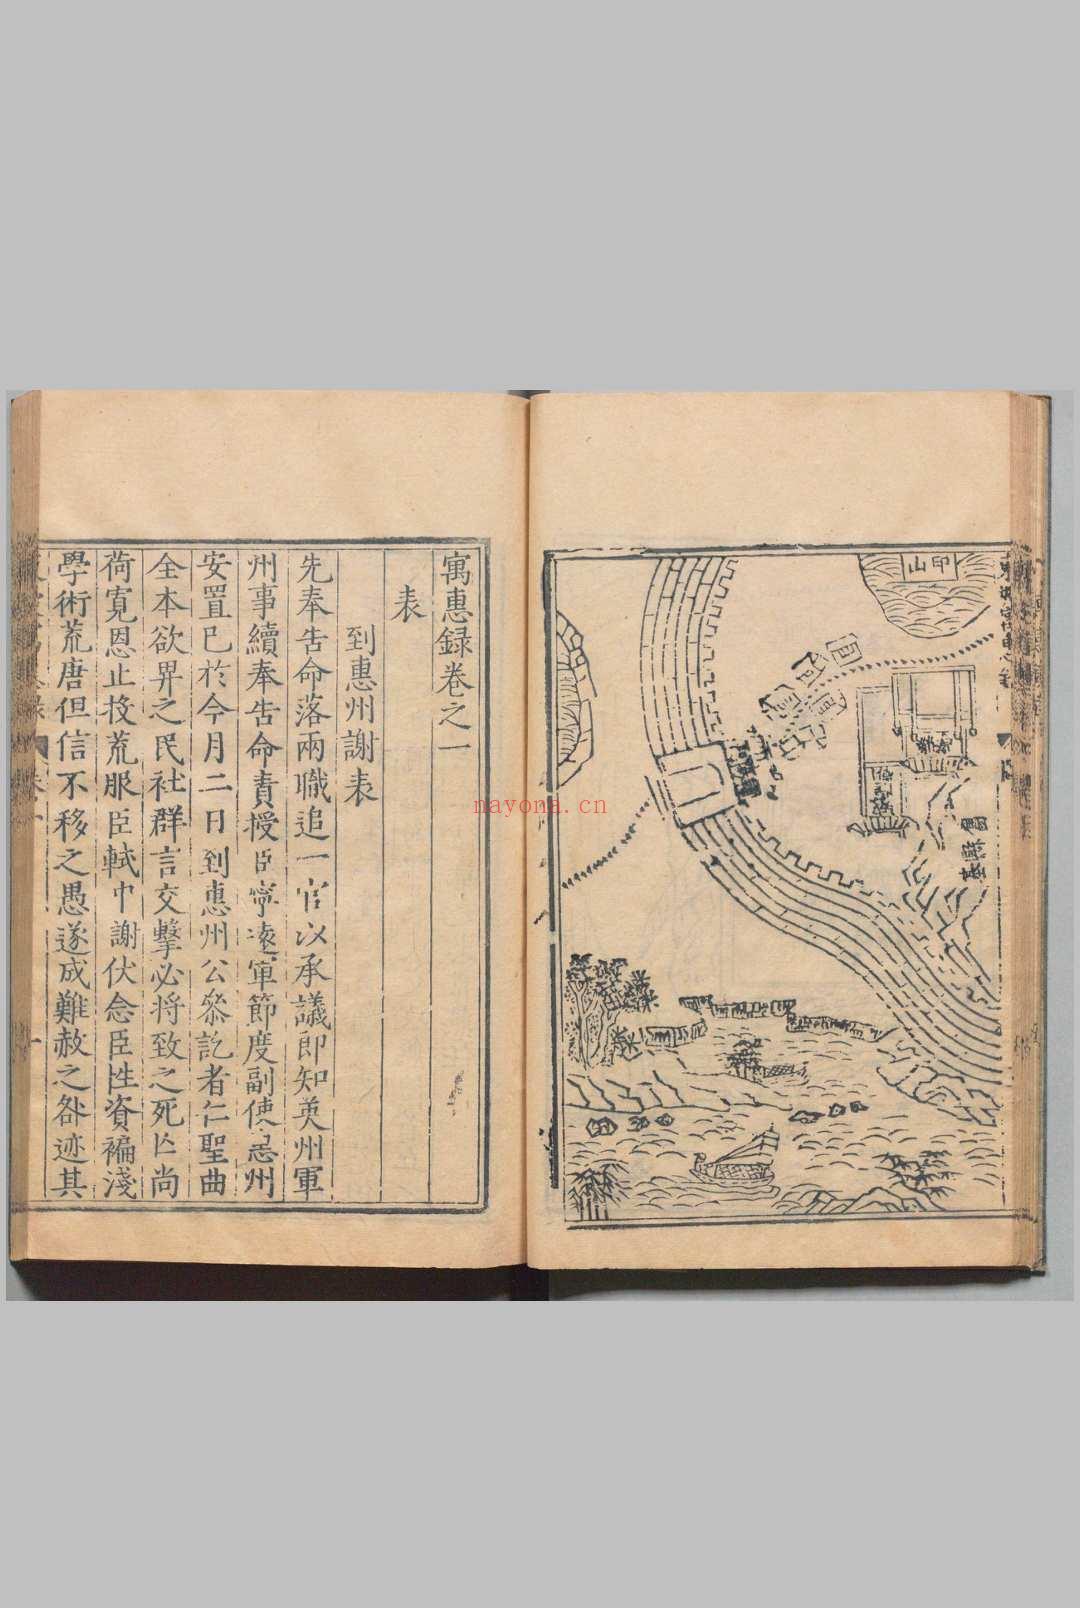 印山
寓惠録卷之一
表
到惠州謝表
先奉告命落兩職追一官以承議郎知英州軍
州事續奉告命責授臣寧遠軍節度副使惠州
安置已於今月二日到惠州公參訖者仁聖曲
全本欲畀之民社群言交擊必將致之死亡尚
荷寬恩止投荒服臣軾中謝伏念臣性資褊淺
學術荒唐但信不移之愚遂成難赦之咎迹其
nayona.cn